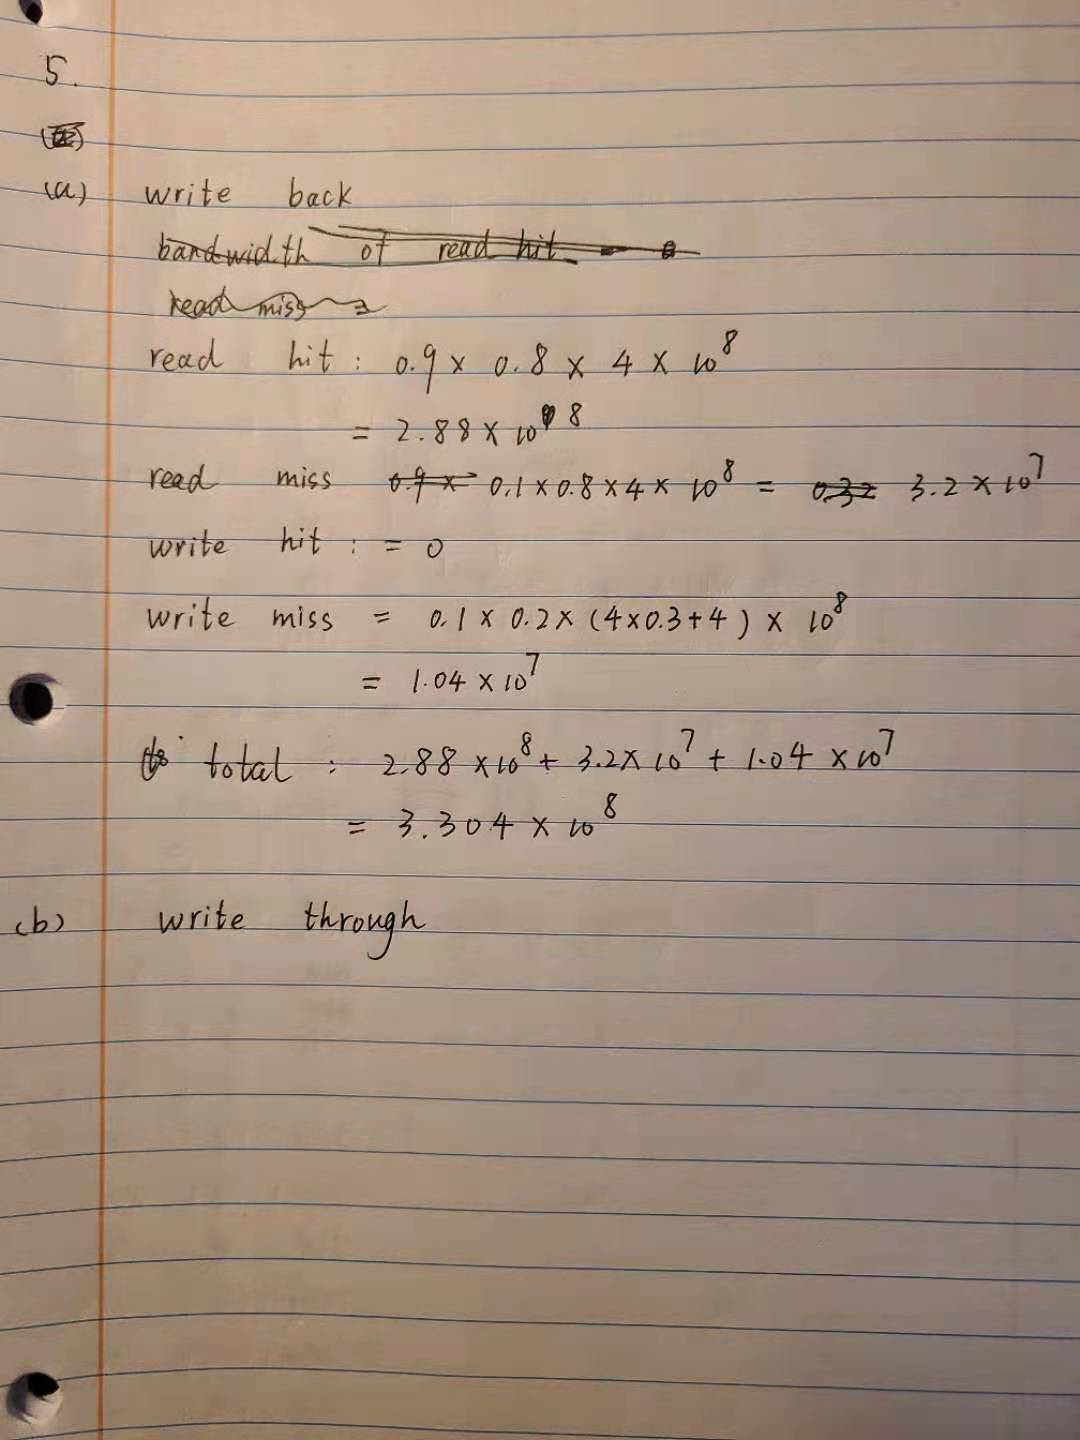 5.
(a)
(a) write back
bandwidth of read hit =
read miss =
read hit : 0.9 × 0.8 × 4 × 10^8
= 2.88 × 10^8
read miss 0.9 × 0.1 × 0.8 × 4 × 10^8 = 0.32 3.2 × 10^7
write hit : = 0
write miss = 0.1 × 0.2 × (4 × 0.3 + 4) × 10^8
= 1.04 × 10^7
total : 2.88 × 10^8 + 3.2 × 10^7 + 1.04 × 10^7
= 3.304 × 10^8
(b) write through